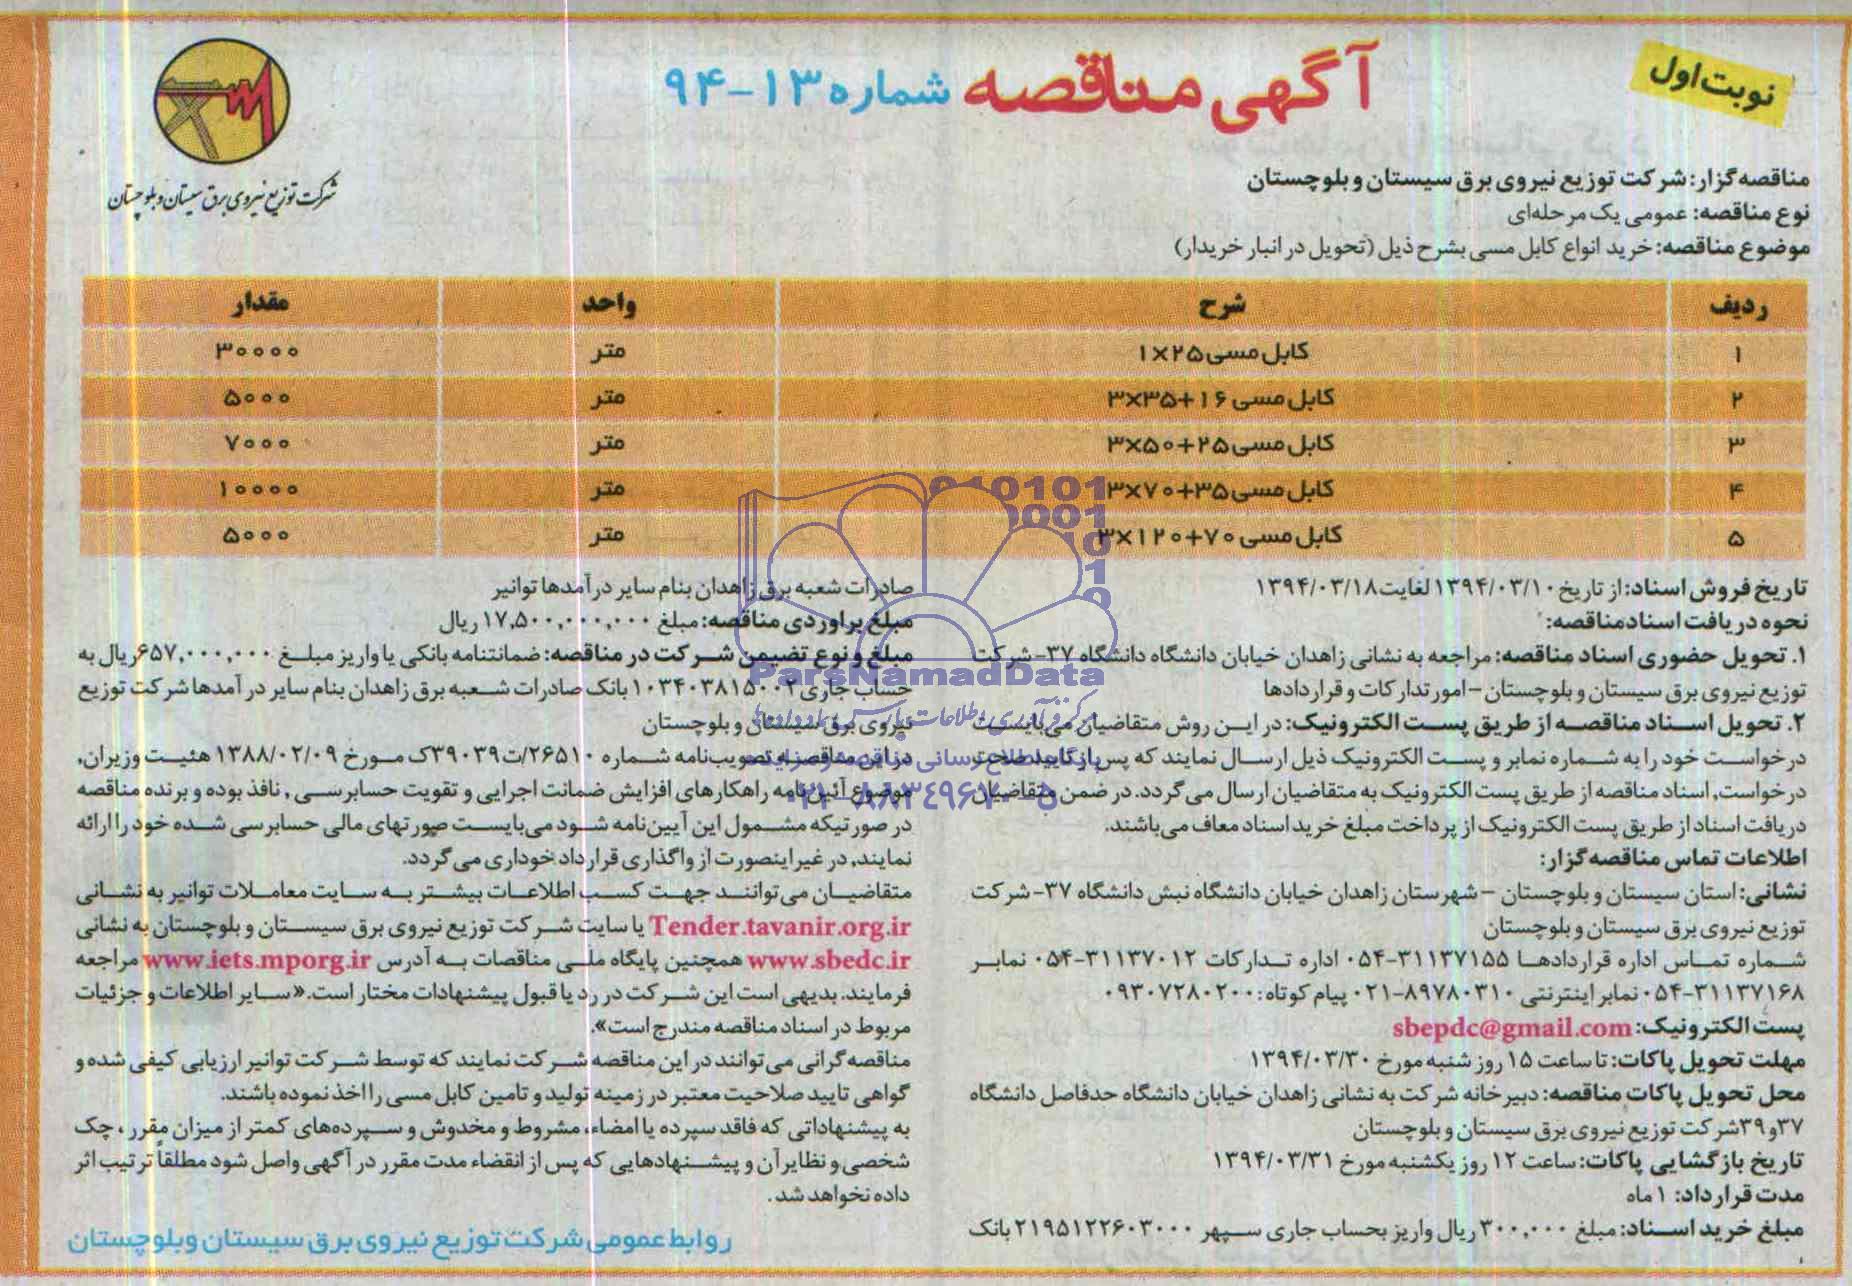 نوبت اول
آگهی مناقصه شماره ۱۳-۹۴
شرکت توزیع نیروی برق سیستان و بلوچستان
مناقصه‌گزار: شرکت توزیع نیروی برق سیستان و بلوچستان
نوع مناقصه: عمومی یک مرحله‌ای
موضوع مناقصه: خرید انواع کابل مسی بشرح ذیل (تحویل در انبار خریدار)
ردیف شرح واحد مقدار
۱ کابل مسی ۲۵×۱ متر ۳۰۰۰۰
۲ کابل مسی ۱۶+۳۵×۳ متر ۵۰۰۰
۳ کابل مسی ۲۵+۵۰×۳ متر ۷۰۰۰
۴ کابل مسی ۳۵+۷۰×۳ متر ۱۰۰۰۰
۵ کابل مسی ۷۰+۱۲۰×۳ متر ۵۰۰۰
تاریخ فروش اسناد: از تاریخ ۱۳۹۴/۰۳/۱۰ لغایت ۱۳۹۴/۰۳/۱۸
نحوه دریافت اسناد مناقصه:
۱. تحویل حضوری اسناد مناقصه: مراجعه به نشانی زاهدان خیابان دانشگاه دانشگاه ۳۷- شرکت
توزیع نیروی برق سیستان و بلوچستان – امور تدارکات و قراردادها
۲. تحویل اسناد مناقصه از طریق پست الکترونیک: در این روش متقاضیان می‌بایست
درخواست خود را به شماره نمابر و پست الکترونیک ذیل ارسال نمایند که پس از تایید صحت
درخواست, اسناد مناقصه از طریق پست الکترونیک به متقاضیان ارسال می‌گردد. در ضمن متقاضیان
دریافت اسناد از طریق پست الکترونیک از پرداخت مبلغ خرید اسناد معاف می‌باشند.
اطلاعات تماس مناقصه‌گزار:
نشانی: استان سیستان و بلوچستان – شهرستان زاهدان خیابان دانشگاه نبش دانشگاه ۳۷- شرکت
توزیع نیروی برق سیستان و بلوچستان
شماره تماس اداره قراردادها ۳۱۱۳۷۱۵۵-۰۵۴ اداره تدارکات ۳۱۱۳۷۰۱۲-۰۵۴ نمابر
۳۱۱۳۷۱۶۸-۰۵۴ نمابر اینترنتی ۸۹۷۸۰۳۱۰-۰۲۱ پیام کوتاه: ۰۹۳۰۷۲۸۰۲۰۰
پست الکترونیک: sbepdc@gmail.com
مهلت تحویل پاکات: تا ساعت ۱۵ روز شنبه مورخ ۱۳۹۴/۰۳/۳۰
محل تحویل پاکات مناقصه: دبیرخانه شرکت به نشانی زاهدان خیابان دانشگاه حدفاصل دانشگاه
۳۷و۳۹ شرکت توزیع نیروی برق سیستان و بلوچستان
تاریخ بازگشایی پاکات: ساعت ۱۲ روز یکشنبه مورخ ۱۳۹۴/۰۳/۳۱
مدت قرارداد: ۱ ماه
مبلغ خرید اسناد: مبلغ ۳۰۰,۰۰۰ ریال واریز بحساب جاری سپهر ۲۱۹۵۱۲۲۶۰۳۰۰۰ بانک
صادرات شعبه برق زاهدان بنام سایر درآمدها توانیر
مبلغ براوردی مناقصه: مبلغ ۱۷,۵۰۰,۰۰۰,۰۰۰ ریال
مبلغ و نوع تضیمن شرکت در مناقصه: ضمانتنامه بانکی یا واریز مبلغ ۶۵۷,۰۰۰,۰۰۰ ریال به
حساب جاری ۱۰۳۴۰۳۸۱۵۰۰۲ بانک صادرات شعبه برق زاهدان بنام سایر درآمدها شرکت توزیع
نیروی برق سیستان و بلوچستان
در این مناقصه تصویب‌نامه شماره ۲۶۵۱۰/ت۳۹۰۳۹ک مورخ ۱۳۸۸/۰۲/۰۹ هئیت وزیران,
موضوع آئین‌نامه راهکارهای افزایش ضمانت اجرایی و تقویت حسابرسی, نافذ بوده و برنده مناقصه
در صورتیکه مشمول این آیین‌نامه شود می‌بایست صورتهای مالی حسابرسی شده خود را ارائه
نمایند, در غیر اینصورت از واگذاری قرارداد خوداری می‌گردد.
متقاضیان می‌توانند جهت کسب اطلاعات بیشتر به سایت معاملات توانیر به نشانی
Tender.tavanir.org.ir یا سایت شرکت توزیع نیروی برق سیستان و بلوچستان به نشانی
www.sbedc.ir همچنین پایگاه ملی مناقصات به آدرس www.iets.mporg.ir مراجعه
فرمایند. بدیهی است این شرکت در رد یا قبول پیشنهادات مختار است.«سایر اطلاعات و جزئیات
مربوط در اسناد مناقصه مندرج است».
مناقصه‌گرانی می‌توانند در این مناقصه شرکت نمایند که توسط شرکت توانیر ارزیابی کیفی شده و
گواهی تایید صلاحیت معتبر در زمینه تولید و تامین کابل مسی را اخذ نموده باشند.
به پیشنهاداتی که فاقد سپرده یا امضاء، مشروط و مخدوش و سپرده‌های کمتر از میزان مقرر، چک
شخصی و نظایر آن و پیشنهادهایی که پس از انقضاء مدت مقرر در آگهی واصل شود مطلقاً ترتیب اثر
داده نخواهد شد.
روابط عمومی شرکت توزیع نیروی برق سیستان و بلوچستان
ParsNamadData
۰۲۱-۸۸۳۴۹۶۷۰-۵